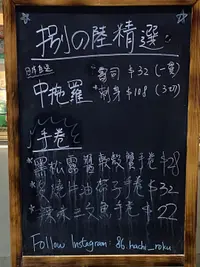 捌の陸精選
日本直送
中拖羅
*壽司 $32 (一貫)
*刺身 $108 (3切)
手卷
*黑松露醬軟殼蟹手卷 $28
*火燒片油甘子手卷 $32
*辣味三文魚手卷 $22
Follow Instagram: 86.hachi_roku